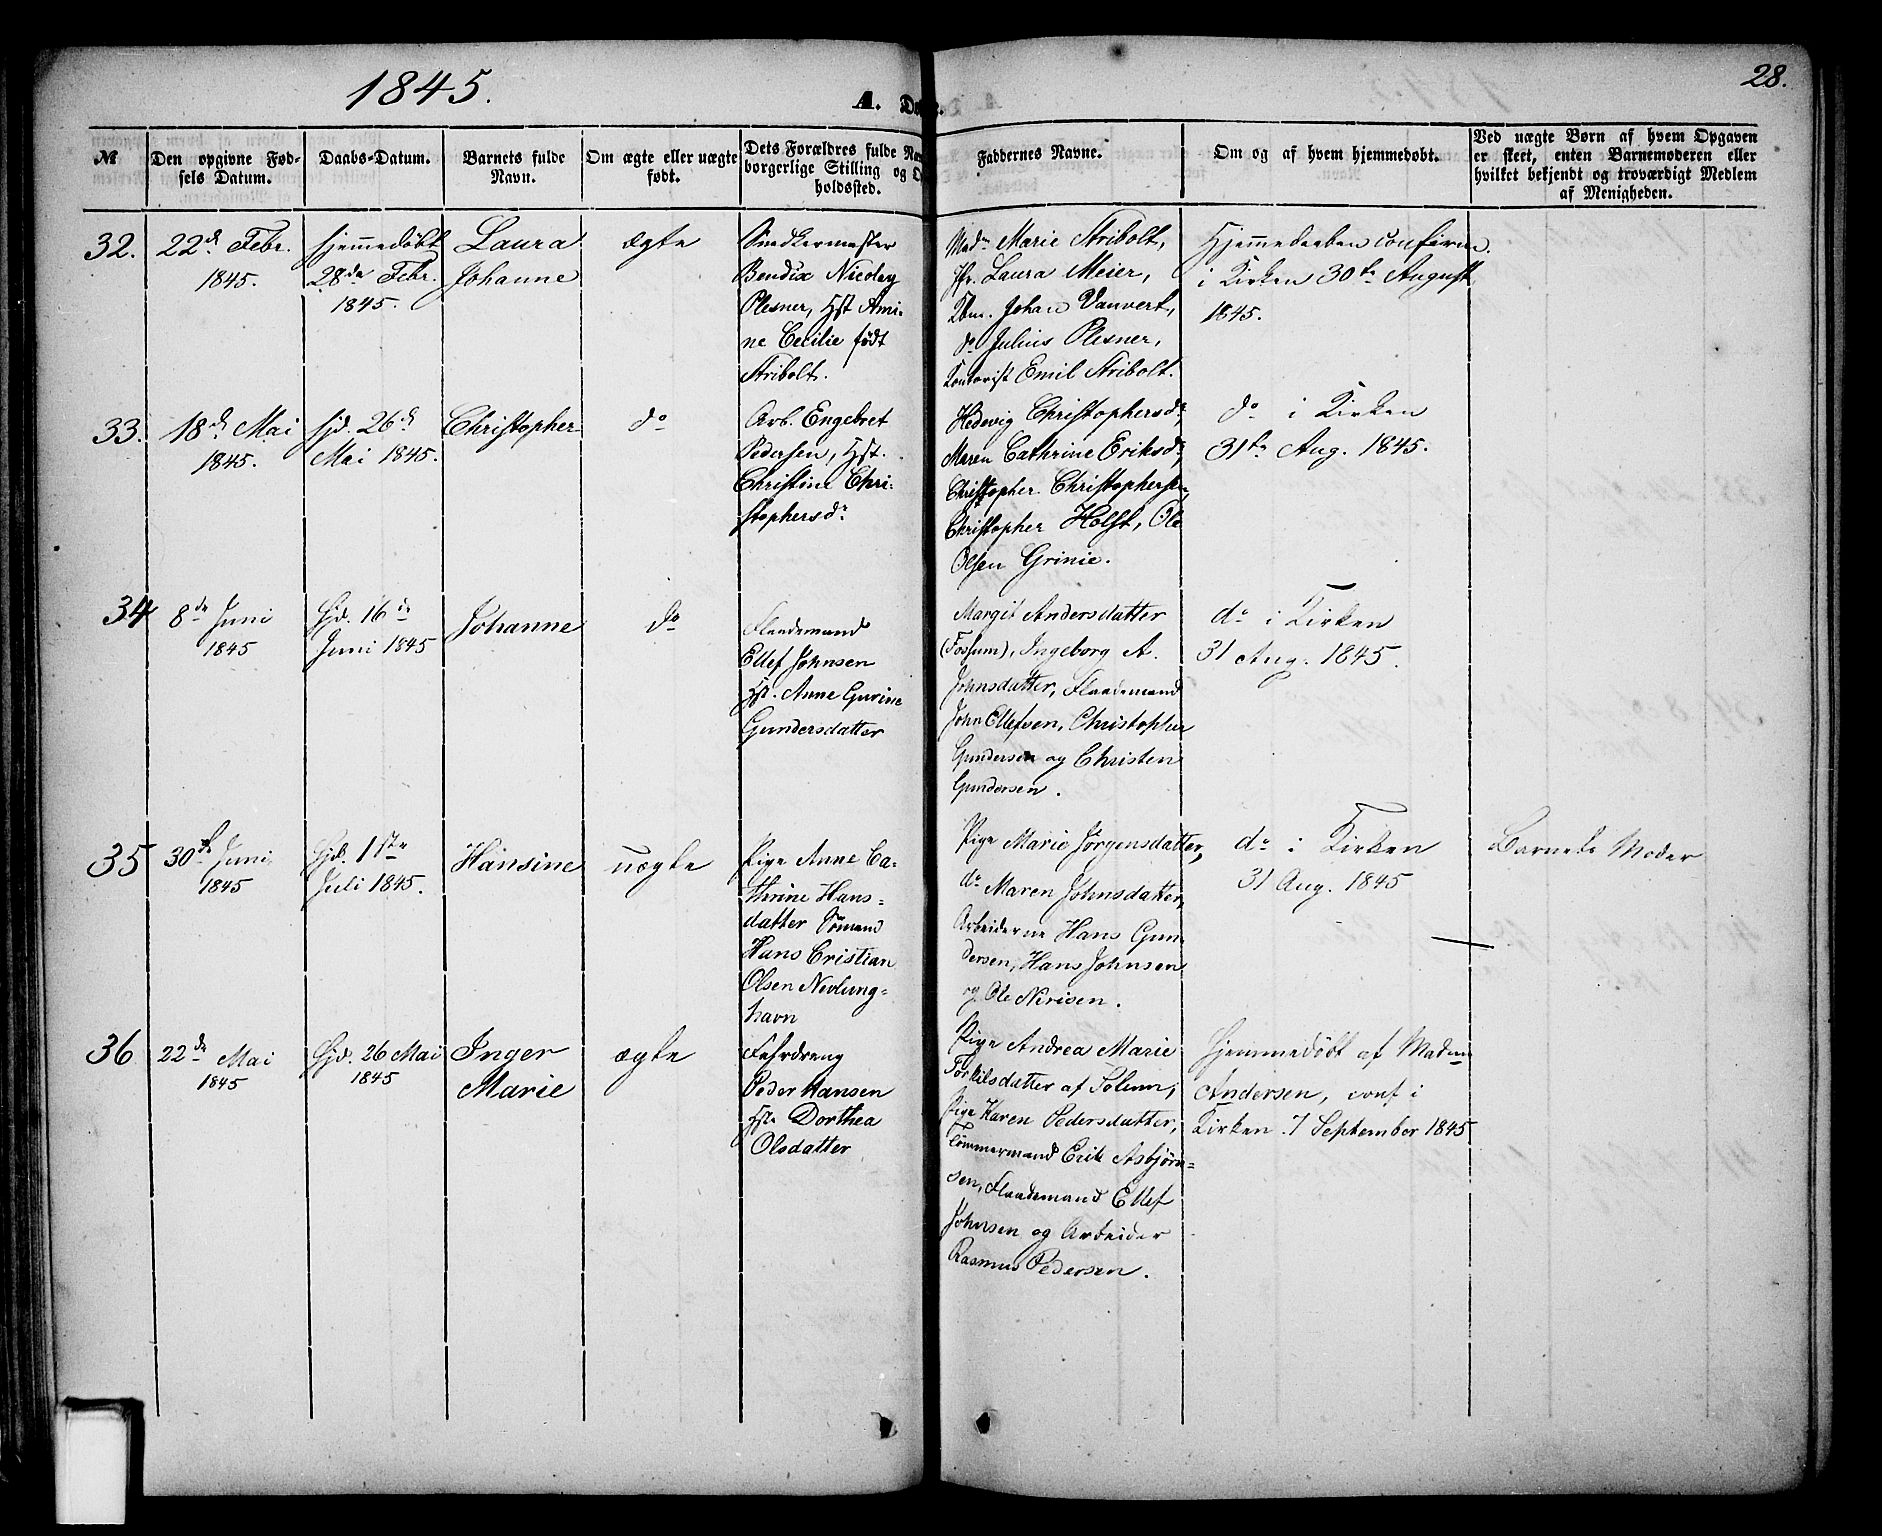 1845.
A.
28.
№
Den opgivne Fød-
sels Datum.
Daabs-Datum.
Barnets fulde
Navn.
Om ægte eller uægte
født.
Dets Forældres fulde
borgerlige Stilling og
holdssted.
Faddernes Navne.
Om og af hvem hjemmedøbt.
Ved uægte Børn af hvem Opgaven
er skeet, enten Barnemoderen eller
hvilket bekjendt og troværdigt Medlem
af Menigheden.
32.
22d Febr.
1845.
hjemmedöbt
28de Febr.
1845.
Laura
Johanne
ægte
Snedkermester
Bendix Nicolay
Plesner, Hst Ami-
ne Cecilie födt
Stribolt.
Madm Marie Stribolt,
Jfr. Laura Meier,
Kbm. Johan Vauvert,
do Julius Plesner,
Kontorist Emil Stribolt.
Hjemmedaaben confirm.
i Kirken 30te August
1845.
33.
18d Mai
1845.
hjd. 26d
Mai 1845.
Christopher
do
Arb. Engebret
Pedersen, Hst.
Christine Chri-
stophersdr
Hedevig Christophersdr,
Maren Cathrine Eriksdr,
Christopher Christophersen,
Christopher Holst, Ole
Olsen Grinie.
do i Kirken
31te Aug. 1845.
34
8de Juni
1845
hjd. 16de
Juni 1845
Johanne
do
Flaademand
Ellef Johnsen
Hst. Anne Gurine
Gundersdatter
Margit Andersdatter
(Fossum), Ingeborg A.
Johnsdatter, Flaademand
John Ellefsen, Christopher
Gundersen og Christen
Gundersen.
do i Kirken
31 Aug. 1845.
35
30de Juni
1845
hjd. 1ste
Juli 1845.
Hansine
uægte
Pige Anne Ca-
thrine Hans-
datter Sömand
Hans Cristian
Olsen Nevlung-
havn
Pige Marie Jörgensdatter,
do Maren Johnsdatter,
Arbeiderne Hans Gun-
dersen, Hans Johnsen
og Ole Nirisen.
do i Kirken
31 Aug. 1845
Barnets Moder
36
22de Mai
1845
hjd. 26 Mai
1845
Inger
Marie
ægte
Peder Hansen
Hst Dorthea
Olsdatter
Pige Andrea Marie
Torkilsdatter af Solum,
Pige Karen Pedersdatter,
Tömmermand Erik Asbjörn-
sen, Flaademand Ellef
Johnsen og Arbeider
Rasmus Pedersen.
Hjemmedöbt af Madm
Andersen, conf i
Kirken 7 September 1845